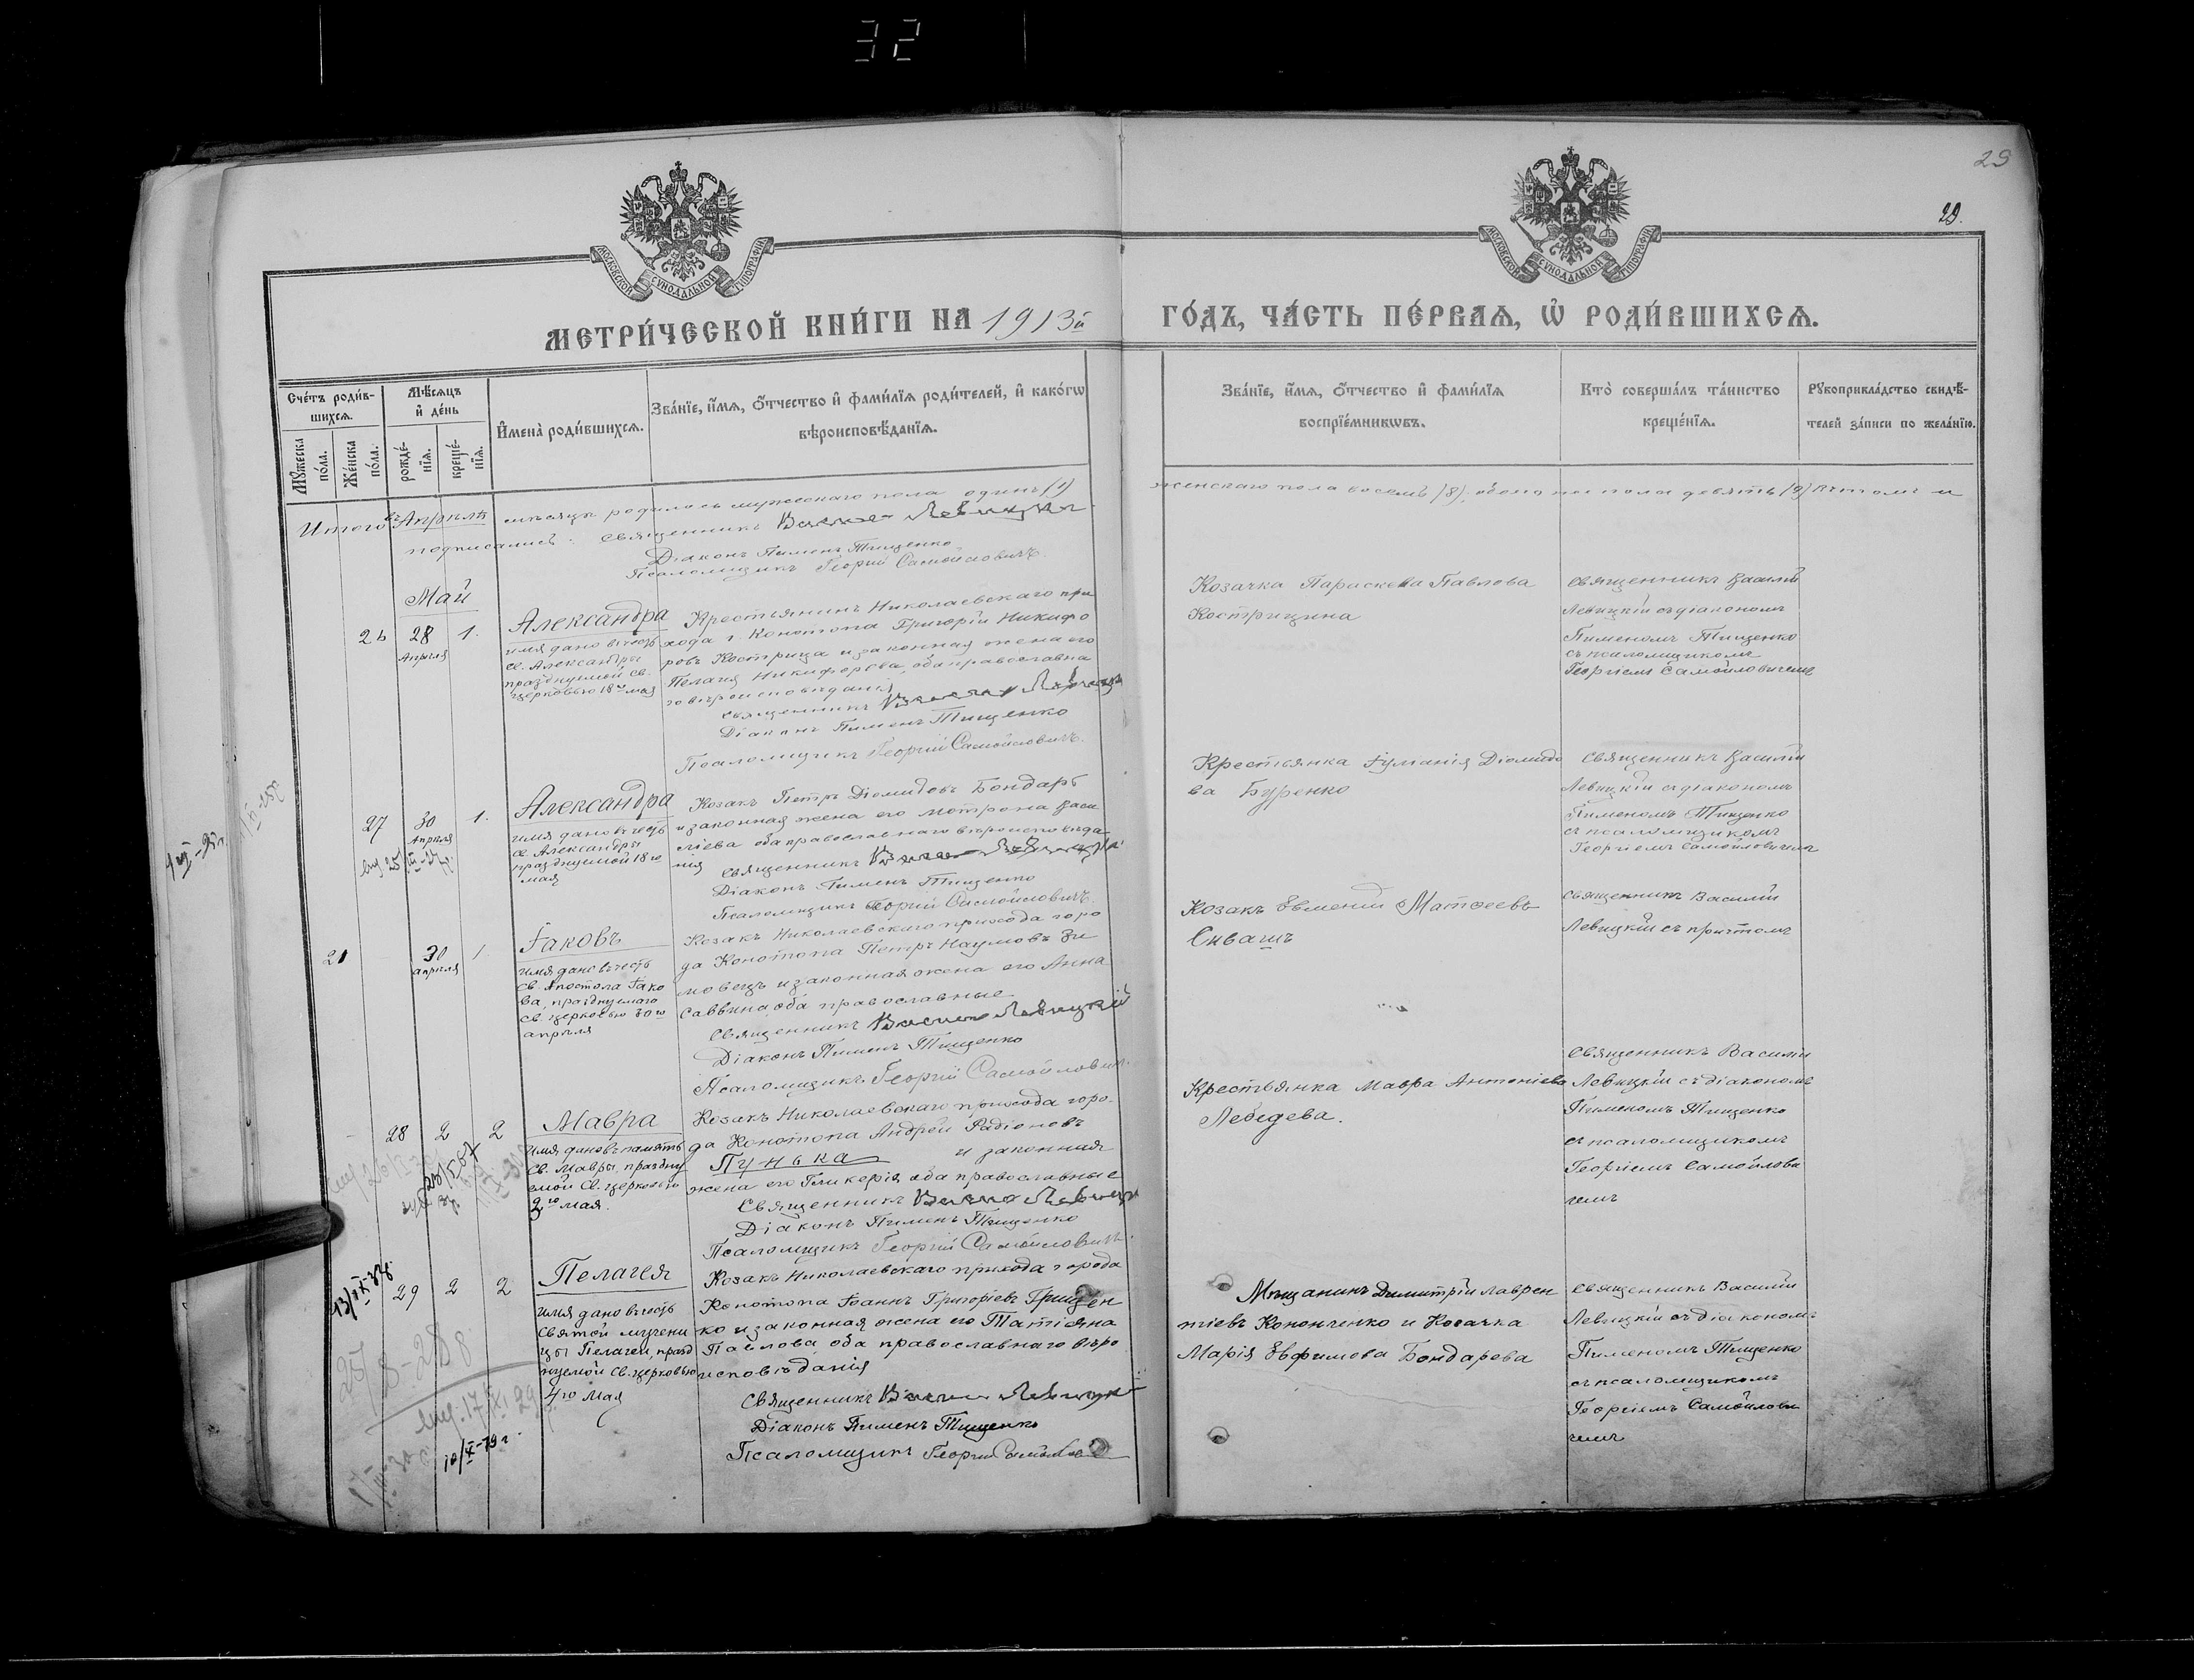 32
29
29.
МОСКОВСКОЙ СѴНОДАЛЬНОЙ ТИПОГРАФІИ
МОСКОВСКОЙ СѴНОДАЛЬНОЙ ТИПОГРАФІИ
МЕТРИ́ЧЕСКОЙ КНИ́ГИ НА 1913й ГО́ДЪ, ЧА́СТЬ ПЕ́РВАѦ, Ѡ҆ РОДИ́ВШИХСѦ.
Сче́тъ роди́в-
шихсѧ.
Мꙋ́жеска
по́ла.
Же́нска
по́ла.
Мѣ́сѧцъ
и҆ де́нь
рожде́-
нїѧ.
креще́-
нїѧ.
И҆мена̀ роди́вшихсѧ.
Зва́нїе, и҆́мѧ, ѻ҆́тчество и҆ фами́лїѧ роди́телей, и҆ како́гѡ
вѣроисповѣ́данїѧ.
Зва́нїе, и҆́мѧ, ѻ҆́тчество и҆ фами́лїѧ
воспрїе́мникѡвъ.
Кто̀ соверша́лъ та́инство
креще́нїѧ.
Рꙋкоприкла́дство свидѣ́-
телей за́писи по жела́нїю.
Итого въ Апрѣлѣ мѣсяцѣ родилось мужескаго пола одинъ (1) женскаго пола восемь (8), обоего пола девять (9) въ томъ и
подписались: Священникъ Василій Левицкій
Діаконъ Пименъ Тищенко
Псаломщикъ Георгій Самойловичъ.
Май
26 28 1.
Апрѣля
Александра
имя дано въ честь
св. Александры
празднуемой св.
церковью 18го мая
Крестьянинъ Николаевскаго при
хода г. Конотопа Григорій Никифо
ровъ Кострица и законная жена его
Пелагія Никифорова, оба православна
го вѣроисповѣданія
Священникъ Василій Левицкій
Діаконъ Пименъ Тищенко
Псаломщикъ Георгій Самойловичъ.
Козачка Параскева Павлова
Кострицина
Священникъ Василій
Левицкій съ діакономъ
Пименомъ Тищенко
съ псаломщикомъ
Георгіемъ Самойловичемъ
27 30 1.
Апрѣля
Александра
имя дано въ честь
св. Александры
празднуемой 18го
мая
Козакъ Петръ Діомидовъ Бондарь
и законная жена его Мотрона Васи
ліева оба православнаго вѣроисповѣда
нія
Священникъ Василій Левицкій
Діаконъ Пименъ Тищенко
Псаломщикъ Георгій Самойловичъ.
Крестьянка Іуліанія Діомидо
ва Буренко
Священникъ Василій
Левицкій съ діакономъ
Пименомъ Тищенко
съ псаломщикомъ
Георгіемъ Самойловичемъ
21 30 1
апрѣля
Іаковъ
имя дано въ честь
св. Апостола Іако
ва, празднуемаго
св. церковью 30го
апрѣля
Козакъ Николаевскаго прихода горо
да Конотопа Петръ Наумовъ Зи
мовецъ и законная жена его Анна
Саввина, оба православные
Священникъ Василій Левицкій
Діаконъ Пименъ Тищенко
Псаломщикъ Георгій Самойловичъ.
Козакъ Евменій Матѳеевъ
Сивашъ
Священникъ Василій
Левицкій съ причтомъ
28 2 2
Мавра
имя дано въ память
св. Мавры, праздну
емой св. церковью
2го мая.
Козакъ Николаевскаго прихода горо-
да Конотопа Андрей Радіоновъ
Пунька и законная
жена его Гликерія оба православные
Священникъ Василій Левицкій
Діаконъ Пименъ Тищенко
Псаломщикъ Георгій Самойловичъ.
Крестьянка Мавра Антоніева
Лебедева.
Священникъ Василій
Левицкій съ діакономъ
Пименомъ Тищенко
съ псаломщикомъ
Георгіемъ Самойлови
чемъ
29 2 2
Пелагея
имя дано въ честь
Святой мучени
цы Пелагеи, празд
нуемой св. церковью
4го мая
Козакъ Николаевскаго прихода города
Конотопа Іоаннъ Григоріевъ Грищен
ко и законная жена его Татіяна
Павлова, оба православнаго вѣро
исповѣданія
Священникъ Василій Левицкій
Діаконъ Пименъ Тищенко
Псаломщикъ Георгій Самойлов
Мѣщанинъ Димитрій Лаврен
тіевъ Кононченко и Козачка
Марія Евфимова Бондарева
Священникъ Василій
Левицкій съ діакономъ
Пименомъ Тищенко
съ псаломщикомъ
Георгіемъ Самойлови
чемъ
10/X-79г.